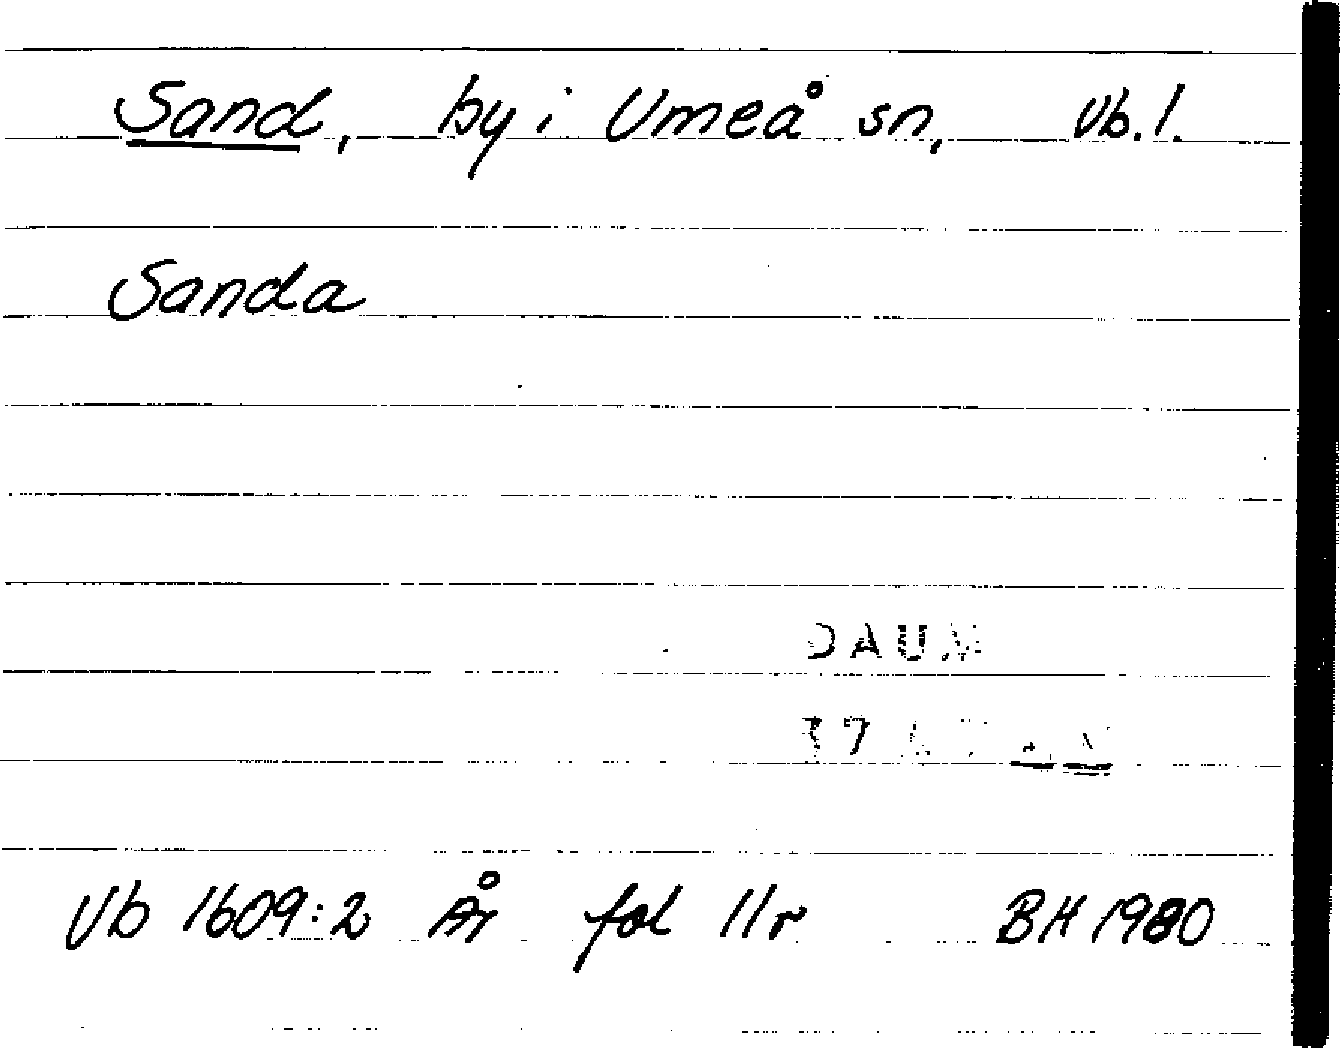 Sand, by i Umeå sn, Vb. l.
Sanda
DAUM
Vb 1609:2 År fol 11r BH 1980